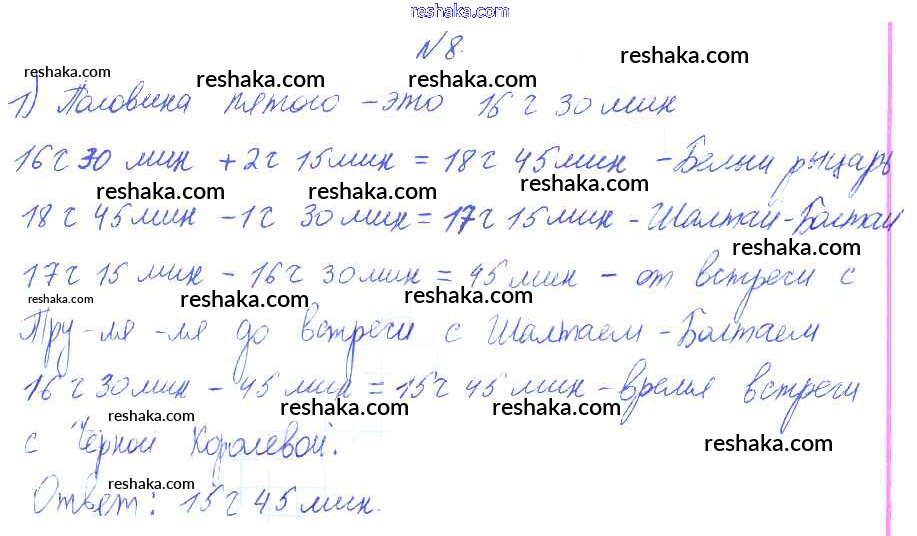 reshaka.com
N 8.
reshaka.com
reshaka.com reshaka.com reshaka.com
1) Половина пятого - это 16 ч 30 мин
reshaka.com reshaka.com
16 ч 30 мин + 2 ч 15 мин = 18 ч 45 мин - Белый рыцарь
reshaka.com reshaka.com reshaka.com
18 ч 45 мин - 1 ч 30 мин = 17 ч 15 мин - Шалтай-Болтай
reshaka.com
17 ч 15 мин - 16 ч 30 мин = 45 мин - от встречи с
reshaka.com reshaka.com reshaka.com
Тру-ля-ля до встречи с Шалтаем-Болтаем
reshaka.com
16 ч 30 мин - 45 мин = 15 ч 45 мин - время встречи
reshaka.com reshaka.com reshaka.com
с Чёрной Королевой.
reshaka.com
reshaka.com
Ответ: 15 ч 45 мин.